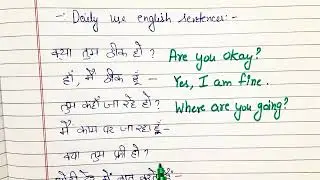 -: Daily use english sentences:-
क्या तुम ठीक हो ? Are you okay?
हां, मैं ठीक हूं - Yes, I am fine.
तुम कहाँ जा रहे हो ? Where are you going?
मैं काम पर जा रहा हूँ -
क्या तुम फ्री हो ?